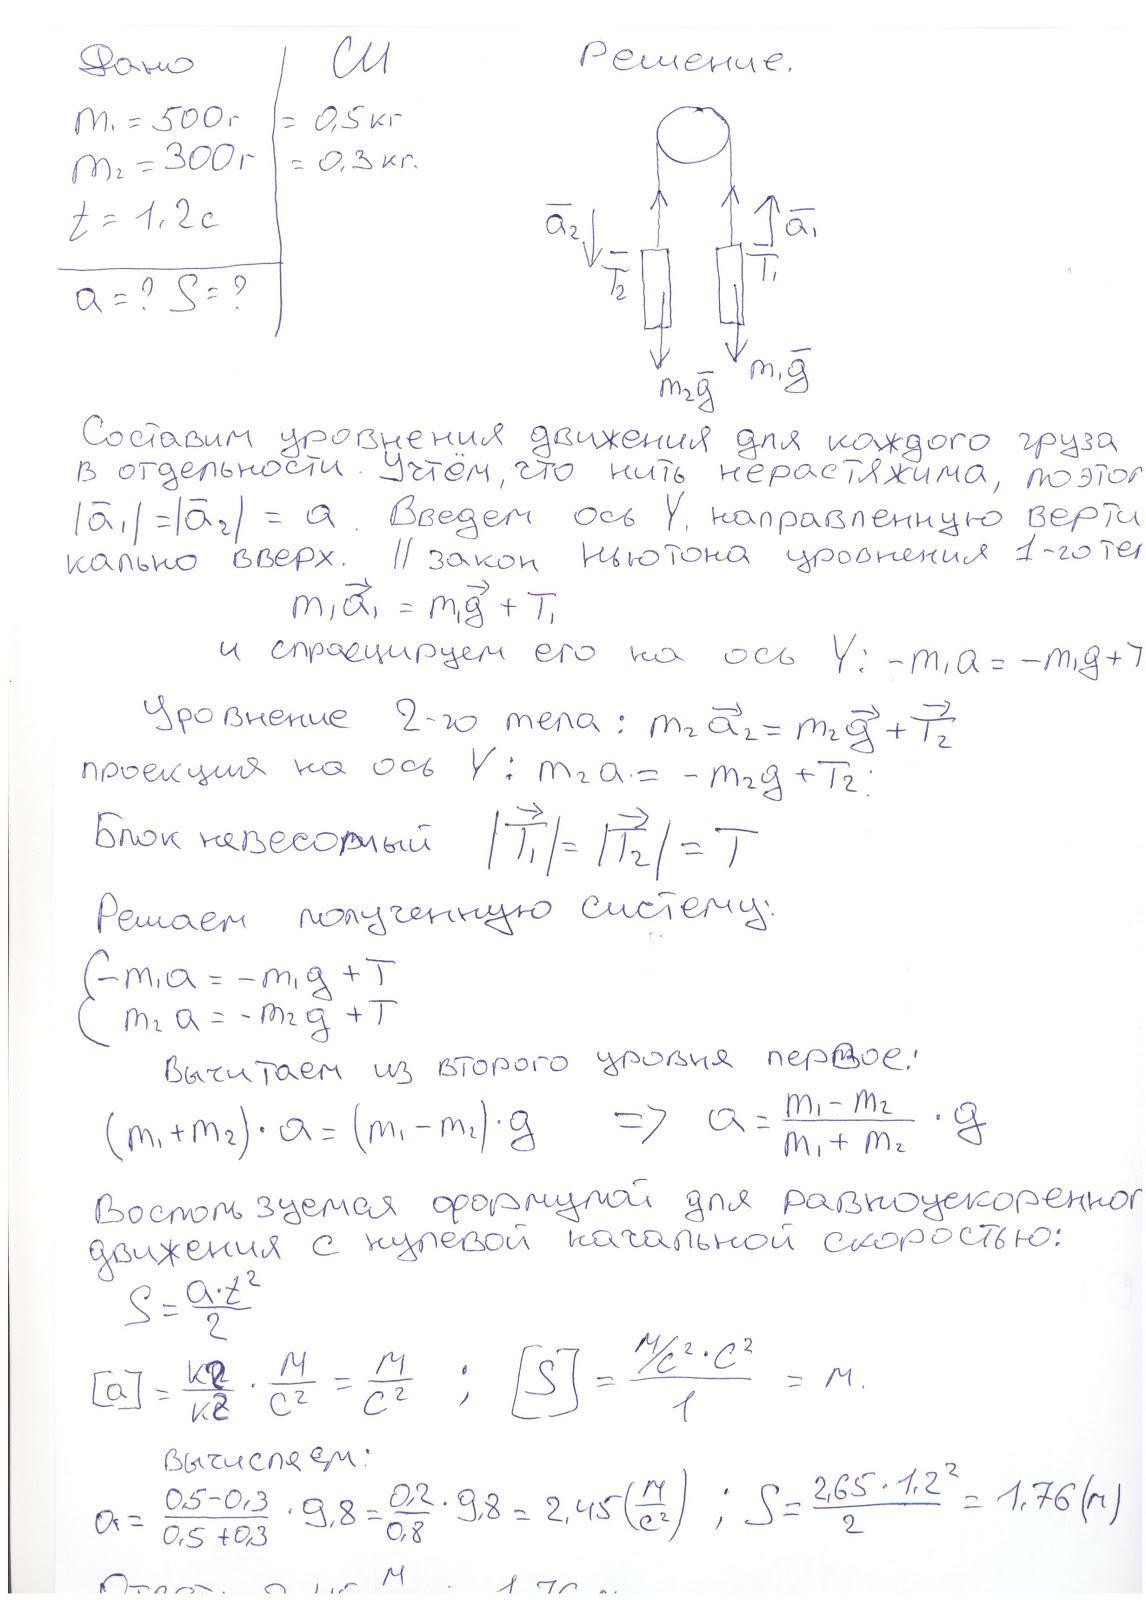 Дано СИ Решение.
m₁ = 500г = 0,5 кг
m₂ = 300г = 0,3 кг.
t = 1,2 с
a = ? S = ?
a̅₂ T̅₂ T̅₁ a̅₁
m₂g̅ m₁g̅
Составим уровнения движения для каждого груза
в отдельности. Учтём, что нить нерастяжима, поэтог
|a̅₁| = |a̅₂| = a. Введем ось Y, направленную верти
кально вверх. II закон Ньютона уровнения 1-го тел
m₁a⃗₁ = m₁g⃗ + T₁
и спроецируем его на ось Y: -m₁a = -m₁g + T
Уровнение 2-го тела: m₂a⃗₂ = m₂g⃗ + T⃗₂
проекция на ось Y: m₂a = -m₂g + T₂:
Блок невесомый |T⃗₁| = |T⃗₂| = T
Решаем полученную систему:
-m₁a = -m₁g + T
m₂a = -m₂g + T
Вычитаем из второго уровня первое:
(m₁ + m₂)·a = (m₁ - m₂)·g => a = (m₁ - m₂)/(m₁ + m₂) · g
Воспользуемся формулой для равноускоренног
движения с нулевой начальной скоростью:
S = a·t²/2
[a] = кг/кг · м/с² = м/с² ; [S] = м/с²·с²/1 = м.
Вычисляем:
a = (0,5-0,3)/(0,5+0,3) · 9,8 = 0,2/0,8 · 9,8 = 2,45 (м/с²) ; S = 2,65·1,2²/2 = 1,76 (м)